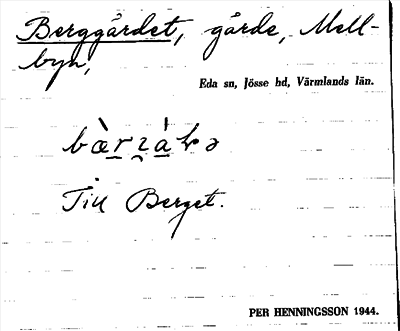 Berggärdet, gärde, Mell-
byn,
Eda sn, Jösse hd, Värmlands län.
Till Berget.
PER HENNINGSSON 1944.